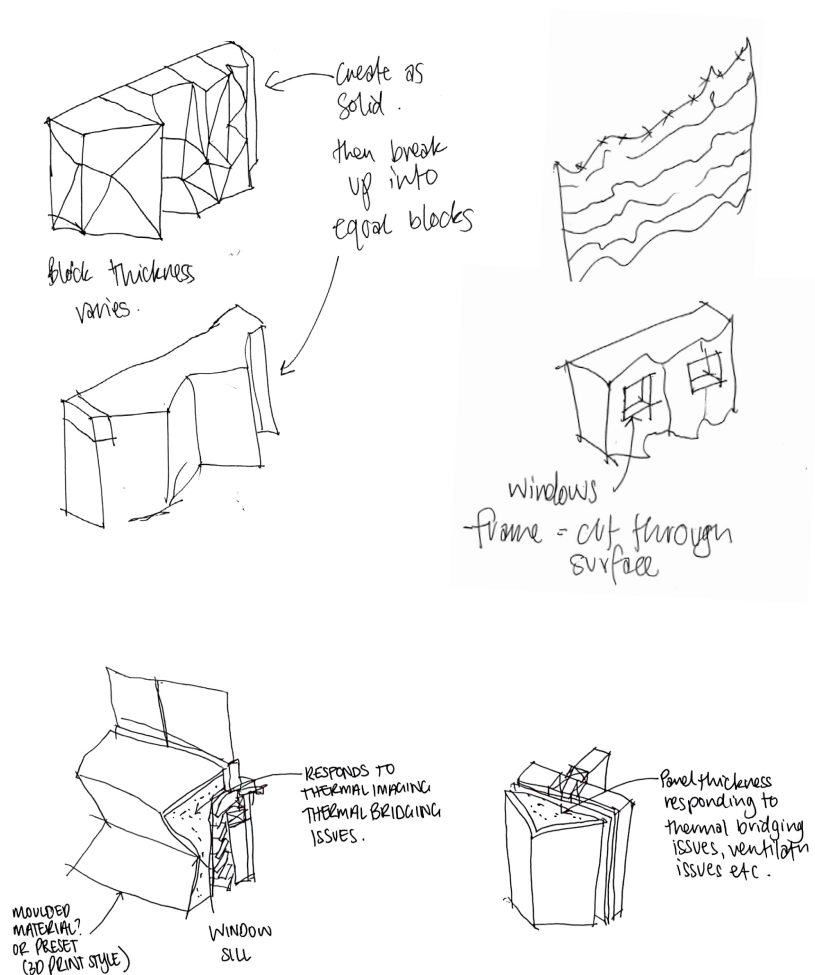 Create as
solid.
then break
up into
equal blocks
Block thickness
varies.
windows
frame = cut through
surface
RESPONDS TO
THERMAL IMAGING
THERMAL BRIDGING
ISSUES.
MOULDED
MATERIAL?
OR PRESET
(3D PRINT STYLE)
WINDOW
SILL
Panel thickness
responding to
thermal bridging
issues, ventilatn
issues etc.